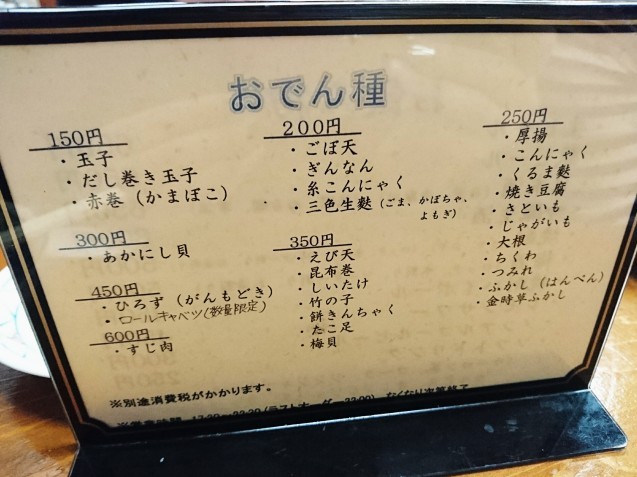 おでん種
150円
・玉子
・だし巻き玉子
・赤巻（かまぼこ）
300円
・あかにし貝
450円
・ひろず（がんもどき）
・ロールキャベツ（数量限定）
600円
・すじ肉
200円
・ごぼ天
・ぎんなん
・糸こんにゃく
・三色生麩（ごま、かぼちゃ、
よもぎ）
350円
・えび天
・昆布巻
・しいたけ
・竹の子
・餅きんちゃく
・たこ足
・梅貝
250円
・厚揚
・こんにゃく
・くるま麩
・焼き豆腐
・さといも
・じゃがいも
・大根
・ちくわ
・つみれ
・ふかし（はんぺん）
・金時草ふかし
※別途消費税がかかります。
※営業時間 (ラストオーダー なくなり次第終了